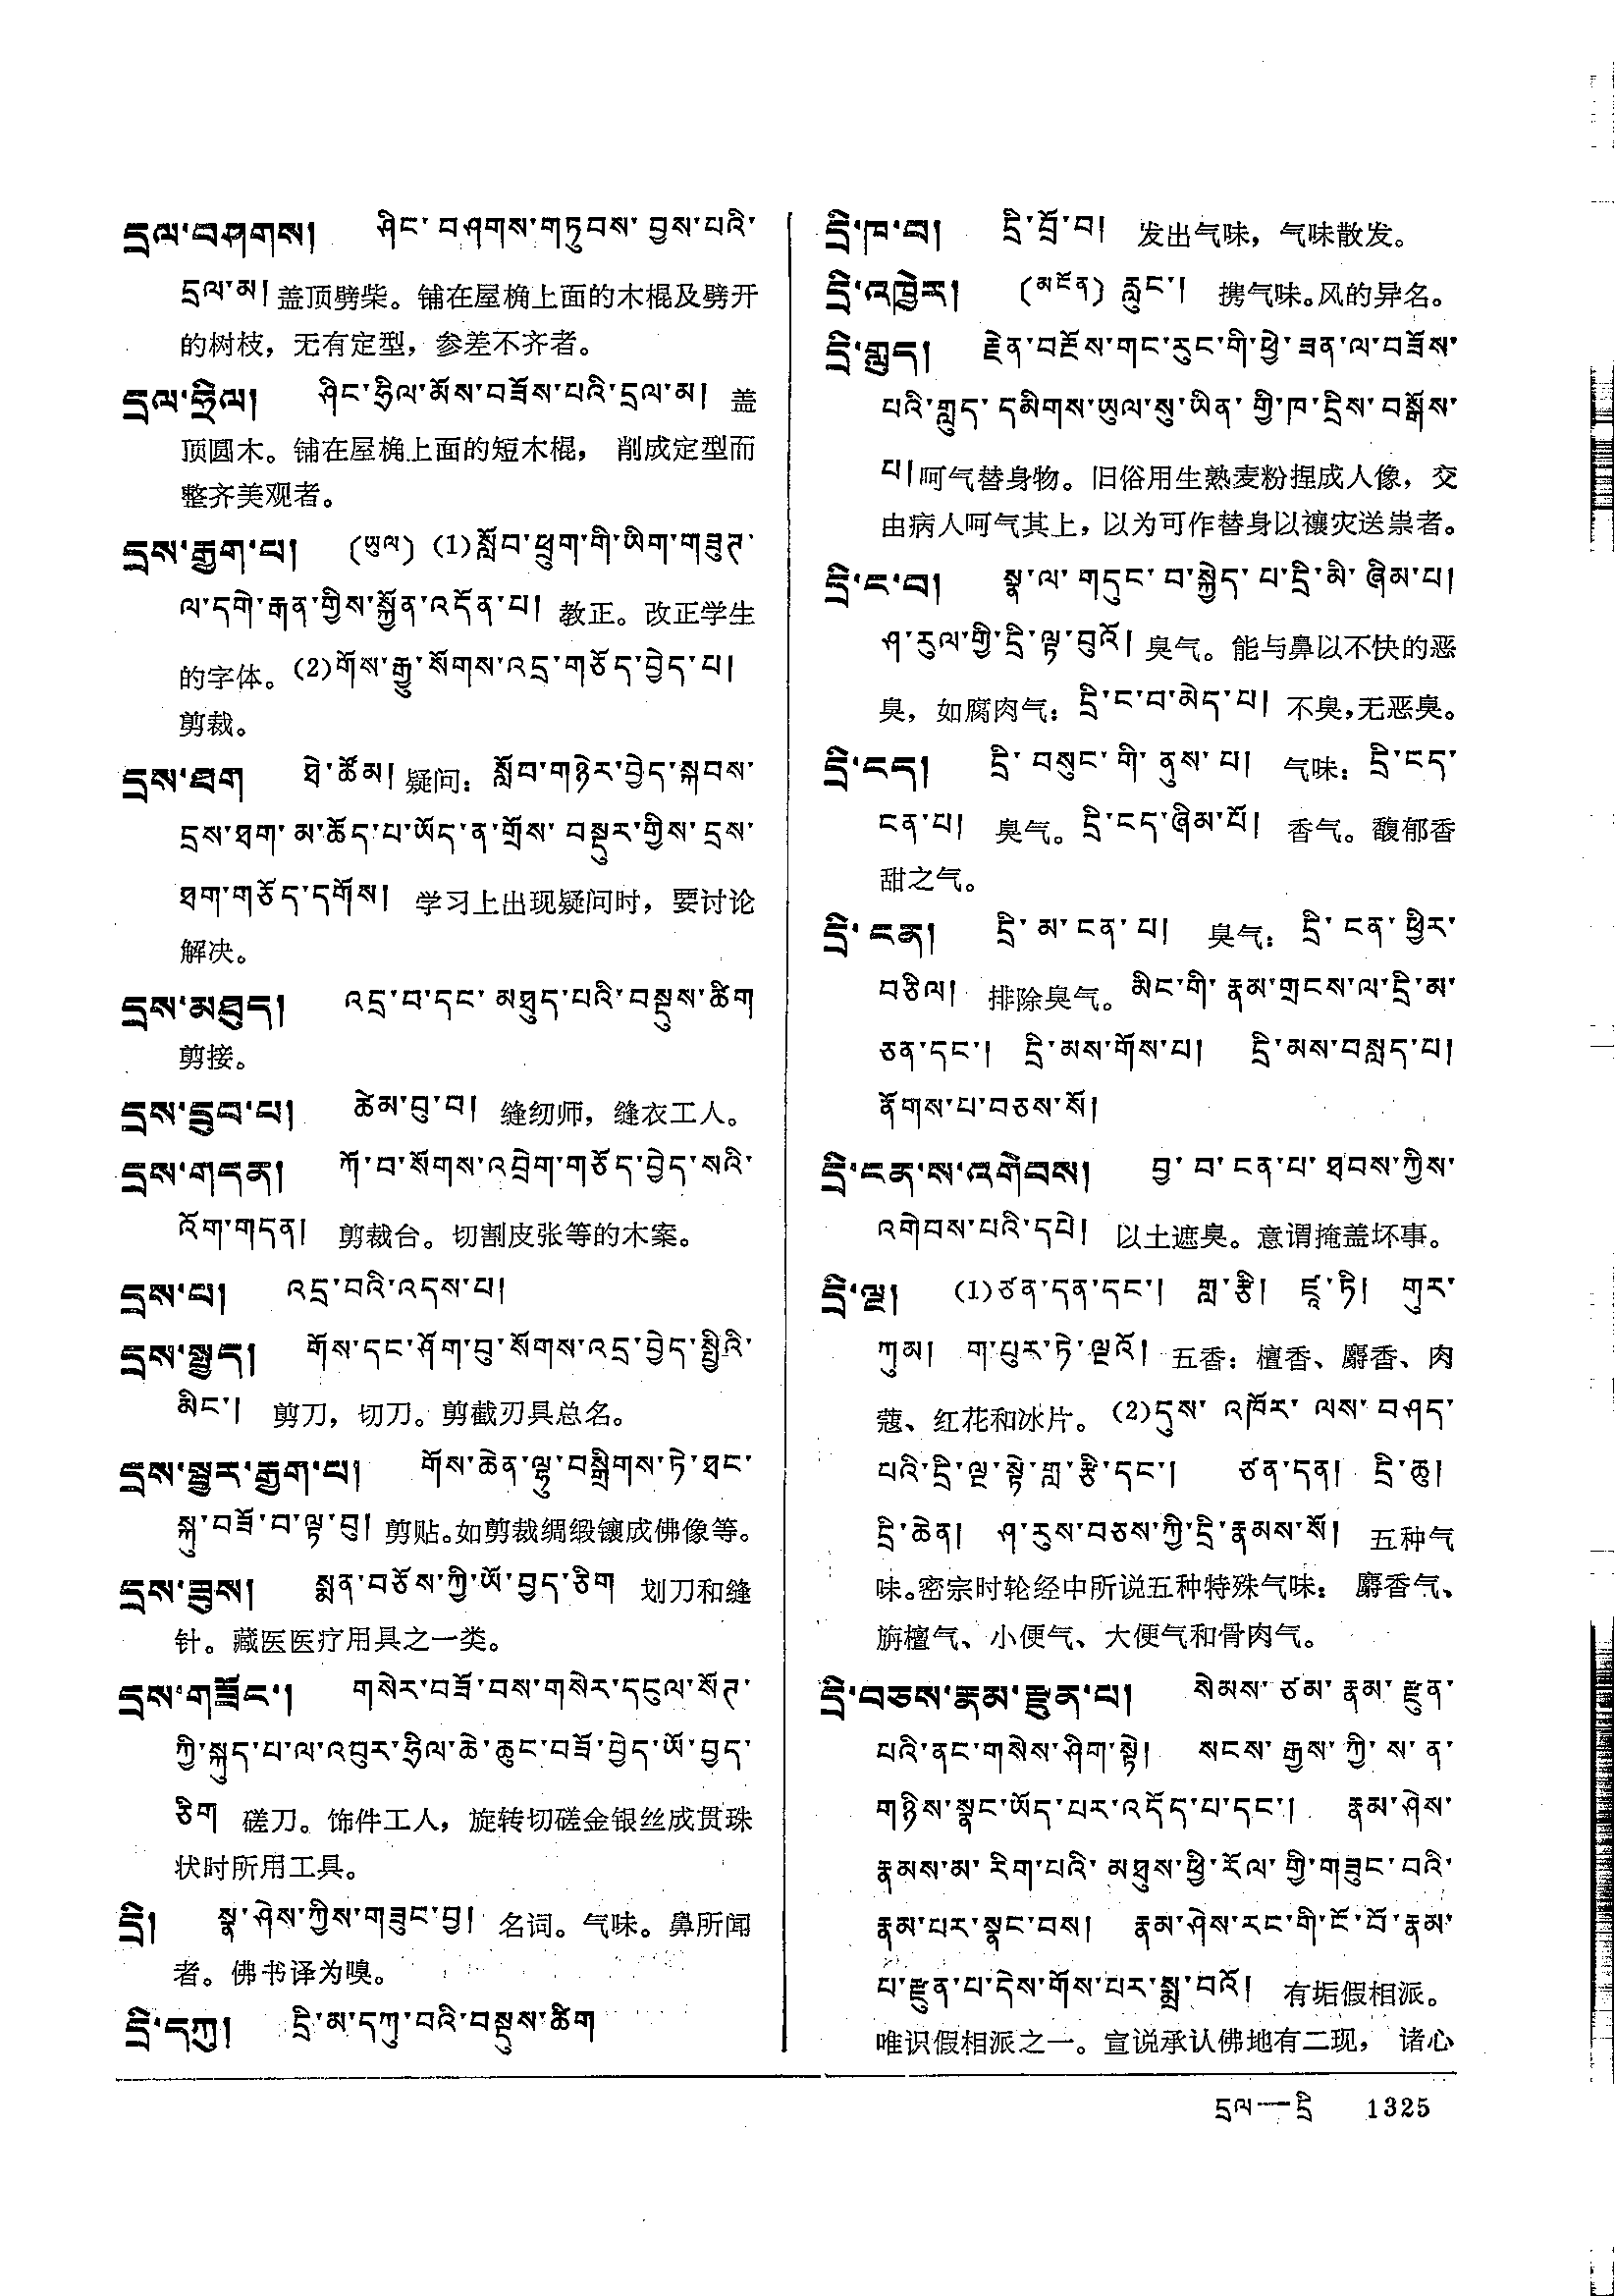 དྲལ་བཤགས། ཤིང་བཤགས་གཏུབས་བྱས་པའི་
དྲལ་མ། 盖顶劈柴。铺在屋桷上面的木棍及劈开
的树枝，无有定型，参差不齐者。
དྲལ་ཧྲིལ། ཤིང་ཧྲིལ་མོས་བཟོས་པའི་དྲལ་མ། 盖
顶圆木。铺在屋桷上面的短木棍，削成定型而
整齐美观者。
དྲས་རྒྱག་པ། (ཡུལ) (1)སློབ་ཕྲུག་གི་ཡིག་གཟུཊ་
ལ་དགེ་རྒན་གྱིས་སྐྱོན་འདོན་པ། 教正。改正学生
的字体。(2)གོས་རྒྱུ་སོགས་འདྲ་གཅོད་བྱེད་པ།
剪裁。
དྲས་ཐག ཐེ་ཚོམ། 疑问：སློབ་གཉེར་བྱེད་སྐབས་
དྲས་ཐག་མ་ཆོད་པ་ཡོད་ན་གྲོས་བསྡུར་གྱིས་དྲས་
ཐག་གཅོད་དགོས། 学习上出现疑问时，要讨论
解决。
དྲས་མཐུད། འདྲ་བ་དང་མཐུད་པའི་བསྡུས་ཚིག
剪接。
དྲས་དྲུབ་པ། ཚེམ་བུ་བ། 缝纫师，缝衣工人。
དྲས་གདན། ཀོ་བ་སོགས་འབྲེག་གཅོད་བྱེད་སའི་
འོག་གདན། 剪裁台。切割皮张等的木案。
དྲས་པ། འདྲ་བའི་འདས་པ།
དྲས་སྤྱད། གོས་དང་ཤོག་བུ་སོགས་འདྲ་བྱེད་སྤྱིའི་
མིང་། 剪刀，切刀。剪截刃具总名。
དྲས་སྦྱར་རྒྱག་པ། གོས་ཆེན་ལྷུ་བསྒྲིགས་ཏེ་ཐང་
སྐུ་བཟོ་བ་ལྟ་བུ། 剪贴。如剪裁绸缎镶成佛像等。
དྲས་ཟུས། སྨན་བཅོས་ཀྱི་ཡོ་བྱད་ཅིག 划刀和缝
针。藏医医疗用具之一类。
དྲས་གཟོང་། གསེར་བཟོ་བས་གསེར་དངུལ་སོཊ་
ཀྱི་སྐུད་པ་ལ་འབུར་ཧྲིལ་ཆེ་ཆུང་བཟོ་བྱེད་ཡོ་བྱད་
ཅིག 磋刀。饰件工人，旋转切磋金银丝成贯珠
状时所用工具。
དྲི། སྣ་ཤེས་ཀྱིས་གཟུང་བྱ། 名词。气味。鼻所闻
者。佛书译为嗅。
དྲི་དཀུ། དྲི་མ་དཀུ་བའི་བསྡུས་ཚིག
དྲི་ཁ་བ། དྲི་བྲོ་བ། 发出气味，气味散发。
དྲི་འཁྱེར། (མངོན) རླུང་། 携气味。风的异名。
དྲི་གླུད། རྗེན་བརྔོས་གང་རུང་གི་ཕྱེ་ཟན་ལ་བཟོས་
པའི་གླུད་དམིགས་ཡུལ་སུ་ཡིན་གྱི་ཁ་དྲིས་བསྒོས་
པ། 呵气替身物。旧俗用生熟麦粉捏成人像，交
由病人呵气其上，以为可作替身以禳灾送祟者。
དྲི་ང་བ། སྣ་ལ་གདུང་བ་སྐྱེད་པ་དྲི་མི་ཞིམ་པ།
ཤ་རུལ་གྱི་དྲི་ལྟ་བུའོ། 臭气。能与鼻以不快的恶
臭，如腐肉气：དྲི་ང་བ་མེད་པ། 不臭，无恶臭。
དྲི་ངད། དྲི་བསུང་གི་ནུས་པ། 气味：དྲི་ངད་
ངན་པ། 臭气。དྲི་ངད་ཞིམ་པོ། 香气。馥郁香
甜之气。
དྲི་ངན། དྲི་མ་ངན་པ། 臭气：དྲི་ངན་ཕྱིར་
བཅིལ། 排除臭气。མིང་གི་རྣམ་གྲངས་ལ་དྲི་མ་
ཅན་དང་། དྲི་མས་གོས་པ། དྲི་མས་བསླད་པ།
ནོགས་པ་བཅས་སོ།
དྲི་ངན་ས་འགེབས། བྱ་བ་ངན་པ་ཐབས་ཀྱིས་
འགེབས་པའི་དཔེ། 以土遮臭。意谓掩盖坏事。
དྲི་ལྔ། (1)ཙན་དན་དང་། གླ་རྩི། ཛཱ་ཏི། གུར་
ཀུམ། ག་པུར་ཏེ་ལྔའོ། 五香：檀香、麝香、肉
蔻、红花和冰片。(2)དུས་འཁོར་ལས་བཤད་
པའི་དྲི་ལྔ་སྟེ་གླ་རྩི་དང་། ཙན་དན། དྲི་ཆུ།
དྲི་ཆེན། ཤ་རུས་བཅས་ཀྱི་དྲི་རྣམས་སོ། 五种气
味。密宗时轮经中所说五种特殊气味：麝香气、
旃檀气、小便气、大便气和骨肉气。
དྲི་བཅས་རྣམ་རྫུན་པ། སེམས་ཙམ་རྣམ་རྫུན་
པའི་ནང་གསེས་ཤིག་སྟེ། སངས་རྒྱས་ཀྱི་ས་ན་
གཉིས་སྣང་ཡོད་པར་འདོད་པ་དང་། རྣམ་ཤེས་
རྣམས་མ་རིག་པའི་མཐུས་ཕྱི་རོལ་གྱི་གཟུང་བའི་
རྣམ་པར་སྣང་བས། རྣམ་ཤེས་རང་གི་ངོ་བོ་རྣམ་
པ་རྫུན་པ་དེས་གོས་པར་སྨྲ་བའོ། 有垢假相派。
唯识假相派之一。宣说承认佛地有二现，诸心
དྲལ—དྲི 1325